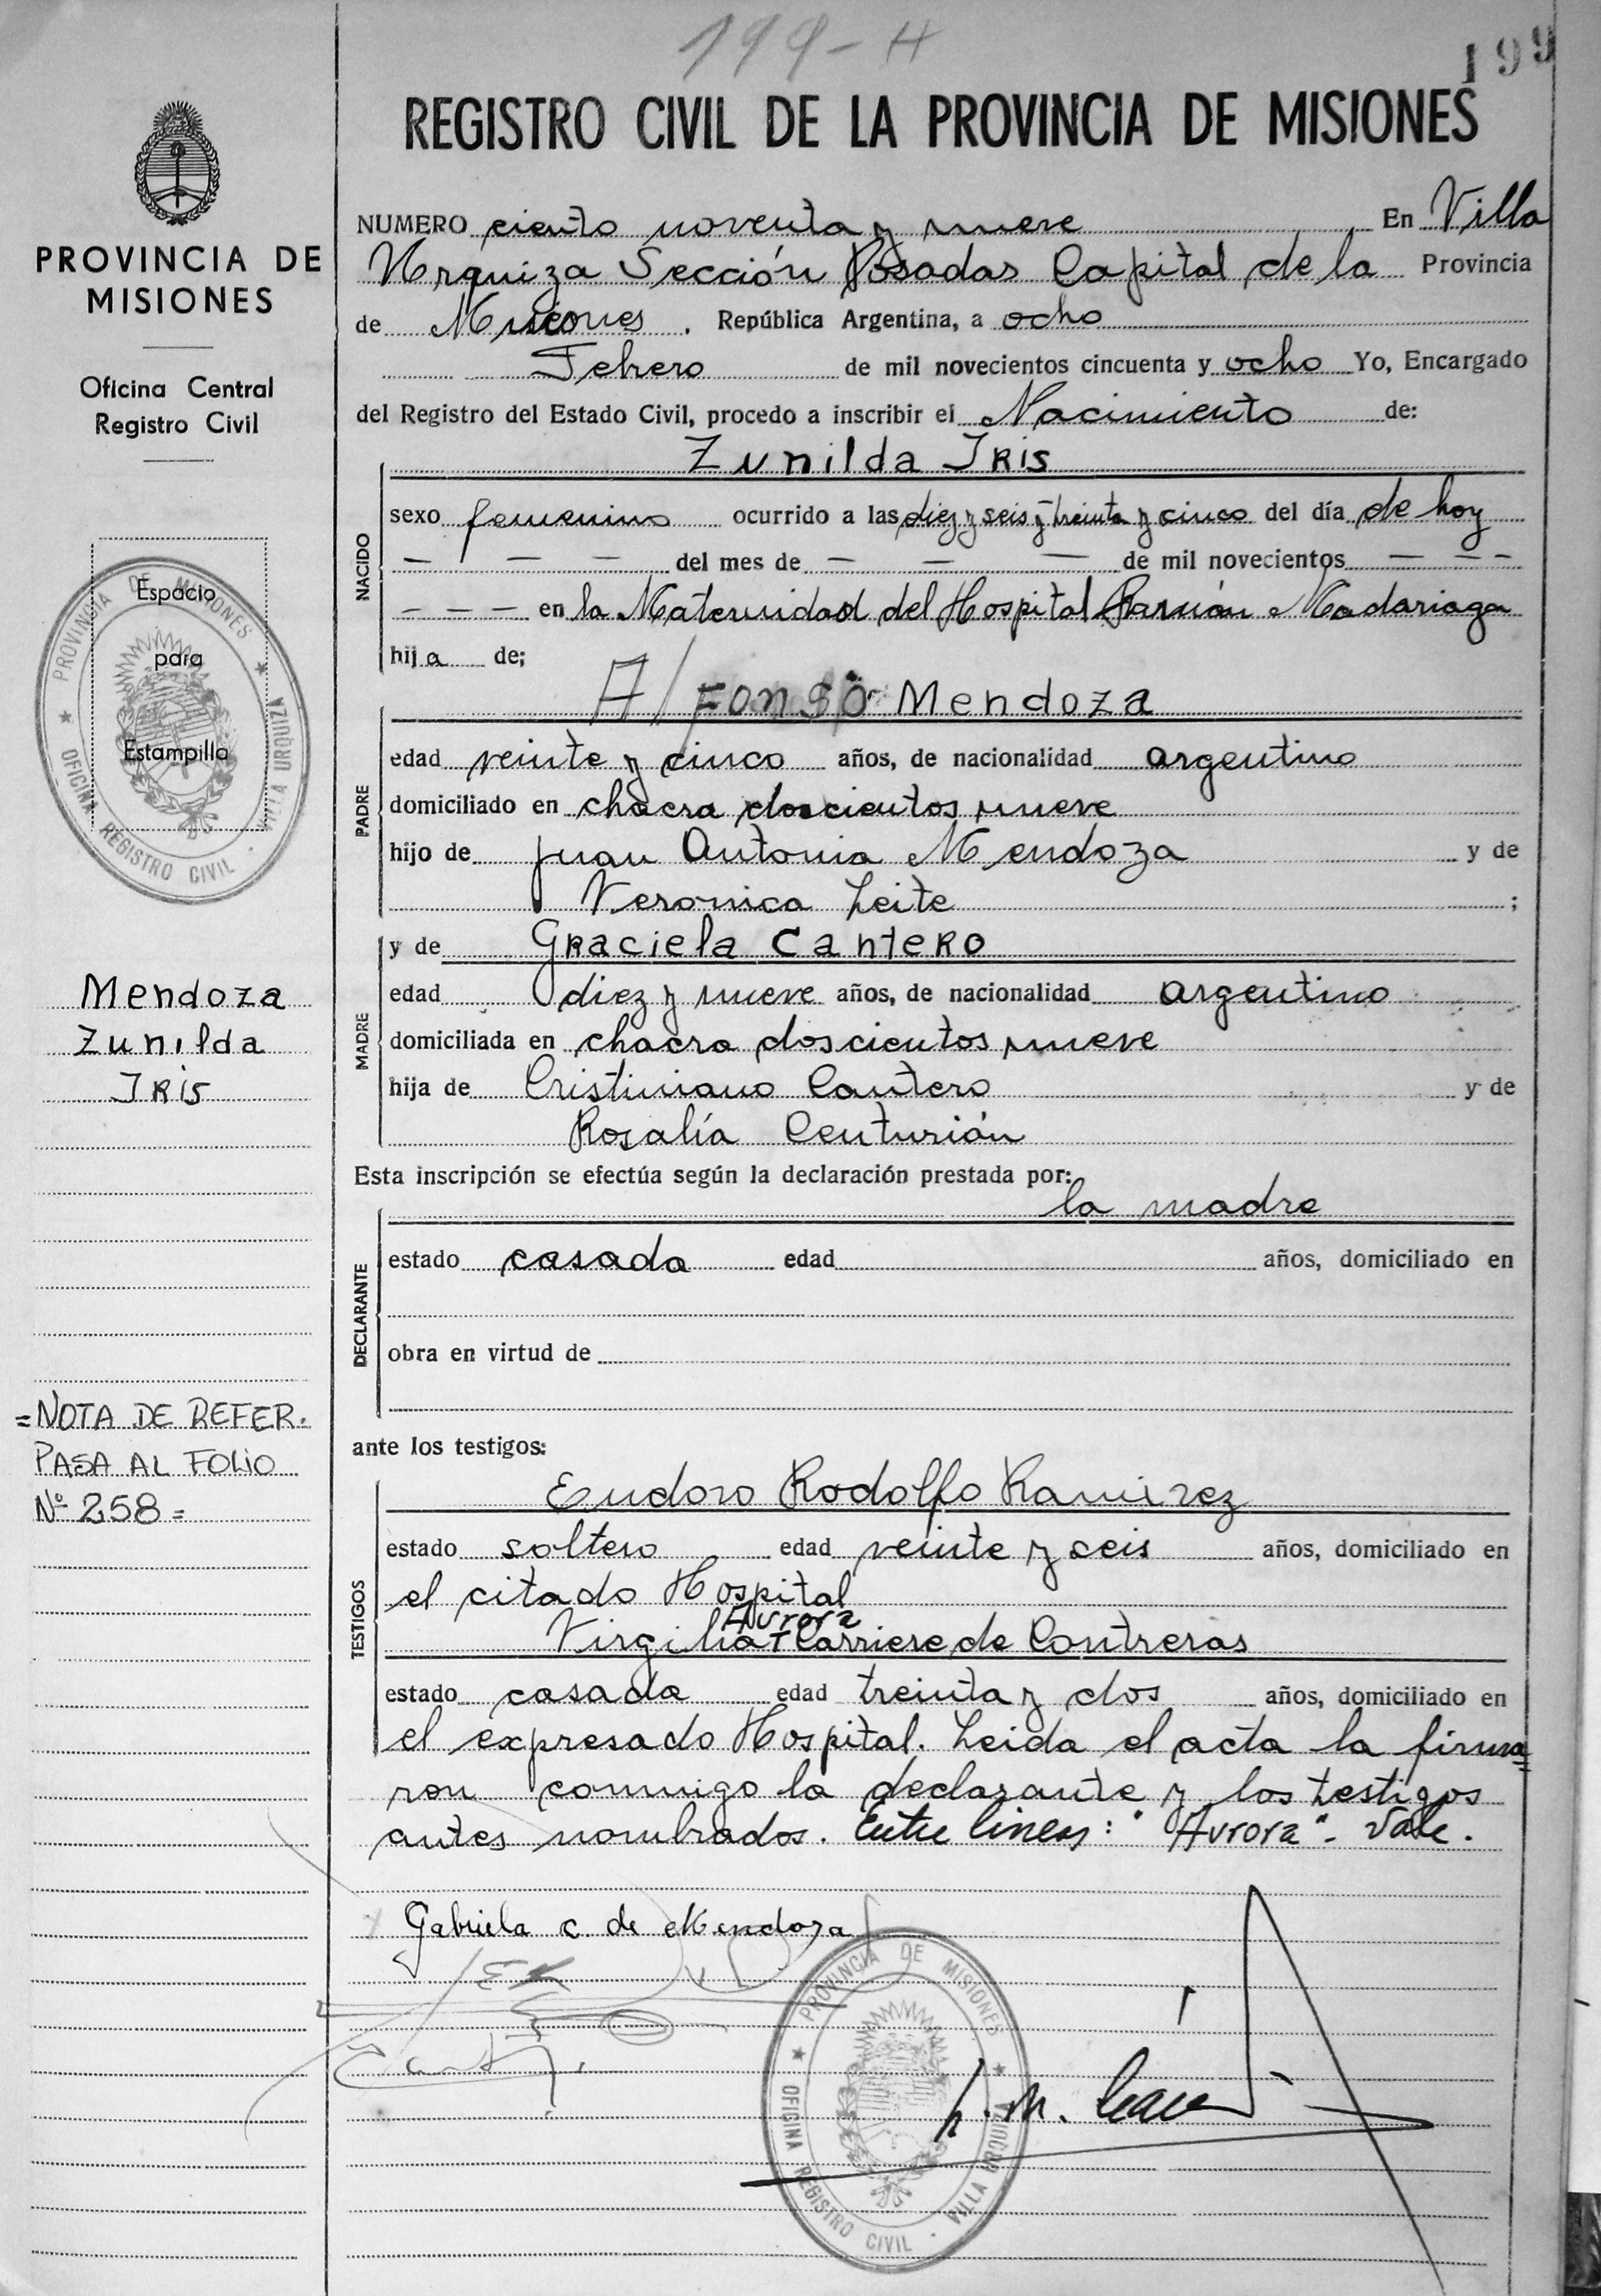 199-H
199
REGISTRO CIVIL DE LA PROVINCIA DE MISIONES
PROVINCIA DE
MISIONES
Oficina Central
Registro Civil
NUMERO ciento noventa y nueve En Villa
Urquiza Sección Posadas Capital de la Provincia
de Misiones . República Argentina, a ocho
Febrero de mil novecientos cincuenta y ocho Yo, Encargado
del Registro del Estado Civil, procedo a inscribir el Nacimiento de:
Zunilda IRis
NACIDO
sexo femenino ocurrido a las diez y seis y treinta y cinco del día de hoy
— — — del mes de — — — de mil novecientos — — —
— — — en la Maternidad del Hospital Ramón Madariaga
hija de;
Alfonso Mendoza
PADRE
edad veinte y cinco años, de nacionalidad argentino
domiciliado en chacra doscientos nueve
hijo de Juan Antonia Mendoza y de
Veronica Leite ;
MADRE
y de GRaciela CanteRo
edad diez y nueve años, de nacionalidad argentino
domiciliada en chacra doscientos nueve
hija de Cristiniano Cantero y de
Rosalía Centurión
Esta inscripción se efectúa según la declaración prestada por:
la madre
DECLARANTE
estado casada edad años, domiciliado en
obra en virtud de
ante los testigos:
Eudoro Rodolfo Ramirez
TESTIGOS
estado soltero edad veinte y seis años, domiciliado en
el citado Hospital
Aurora
Virgilia + Carriere de Contreras
estado casada edad treinta y dos años, domiciliado en
el expresado Hospital. Leida el acta la firma=
ron conmigo la declarante y los testigos
antes nombrados. Entre lineas: "Aurora"- Vale.
Gabriela C. de Mendoza
PROVINCIA DE MISIONES
OFICINA REGISTRO CIVIL · VILLA URQUIZA
PROVINCIA DE MISIONES
OFICINA REGISTRO CIVIL · VILLA URQUIZA
Espacio
para
Estampilla
Mendoza
Zunilda
IRis
=NOTA DE REFER.
PASA AL FOLIO
Nº 258=